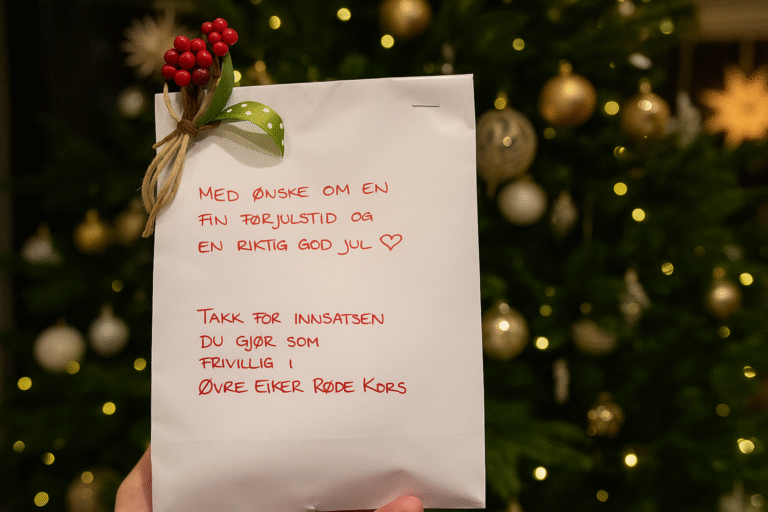 MED ØNSKE OM EN
FIN FØRJULSTID OG
EN RIKTIG GOD JUL ♡
TAKK FOR INNSATSEN
DU GJØR SOM
FRIVILLIG I
ØVRE EIKER RØDE KORS